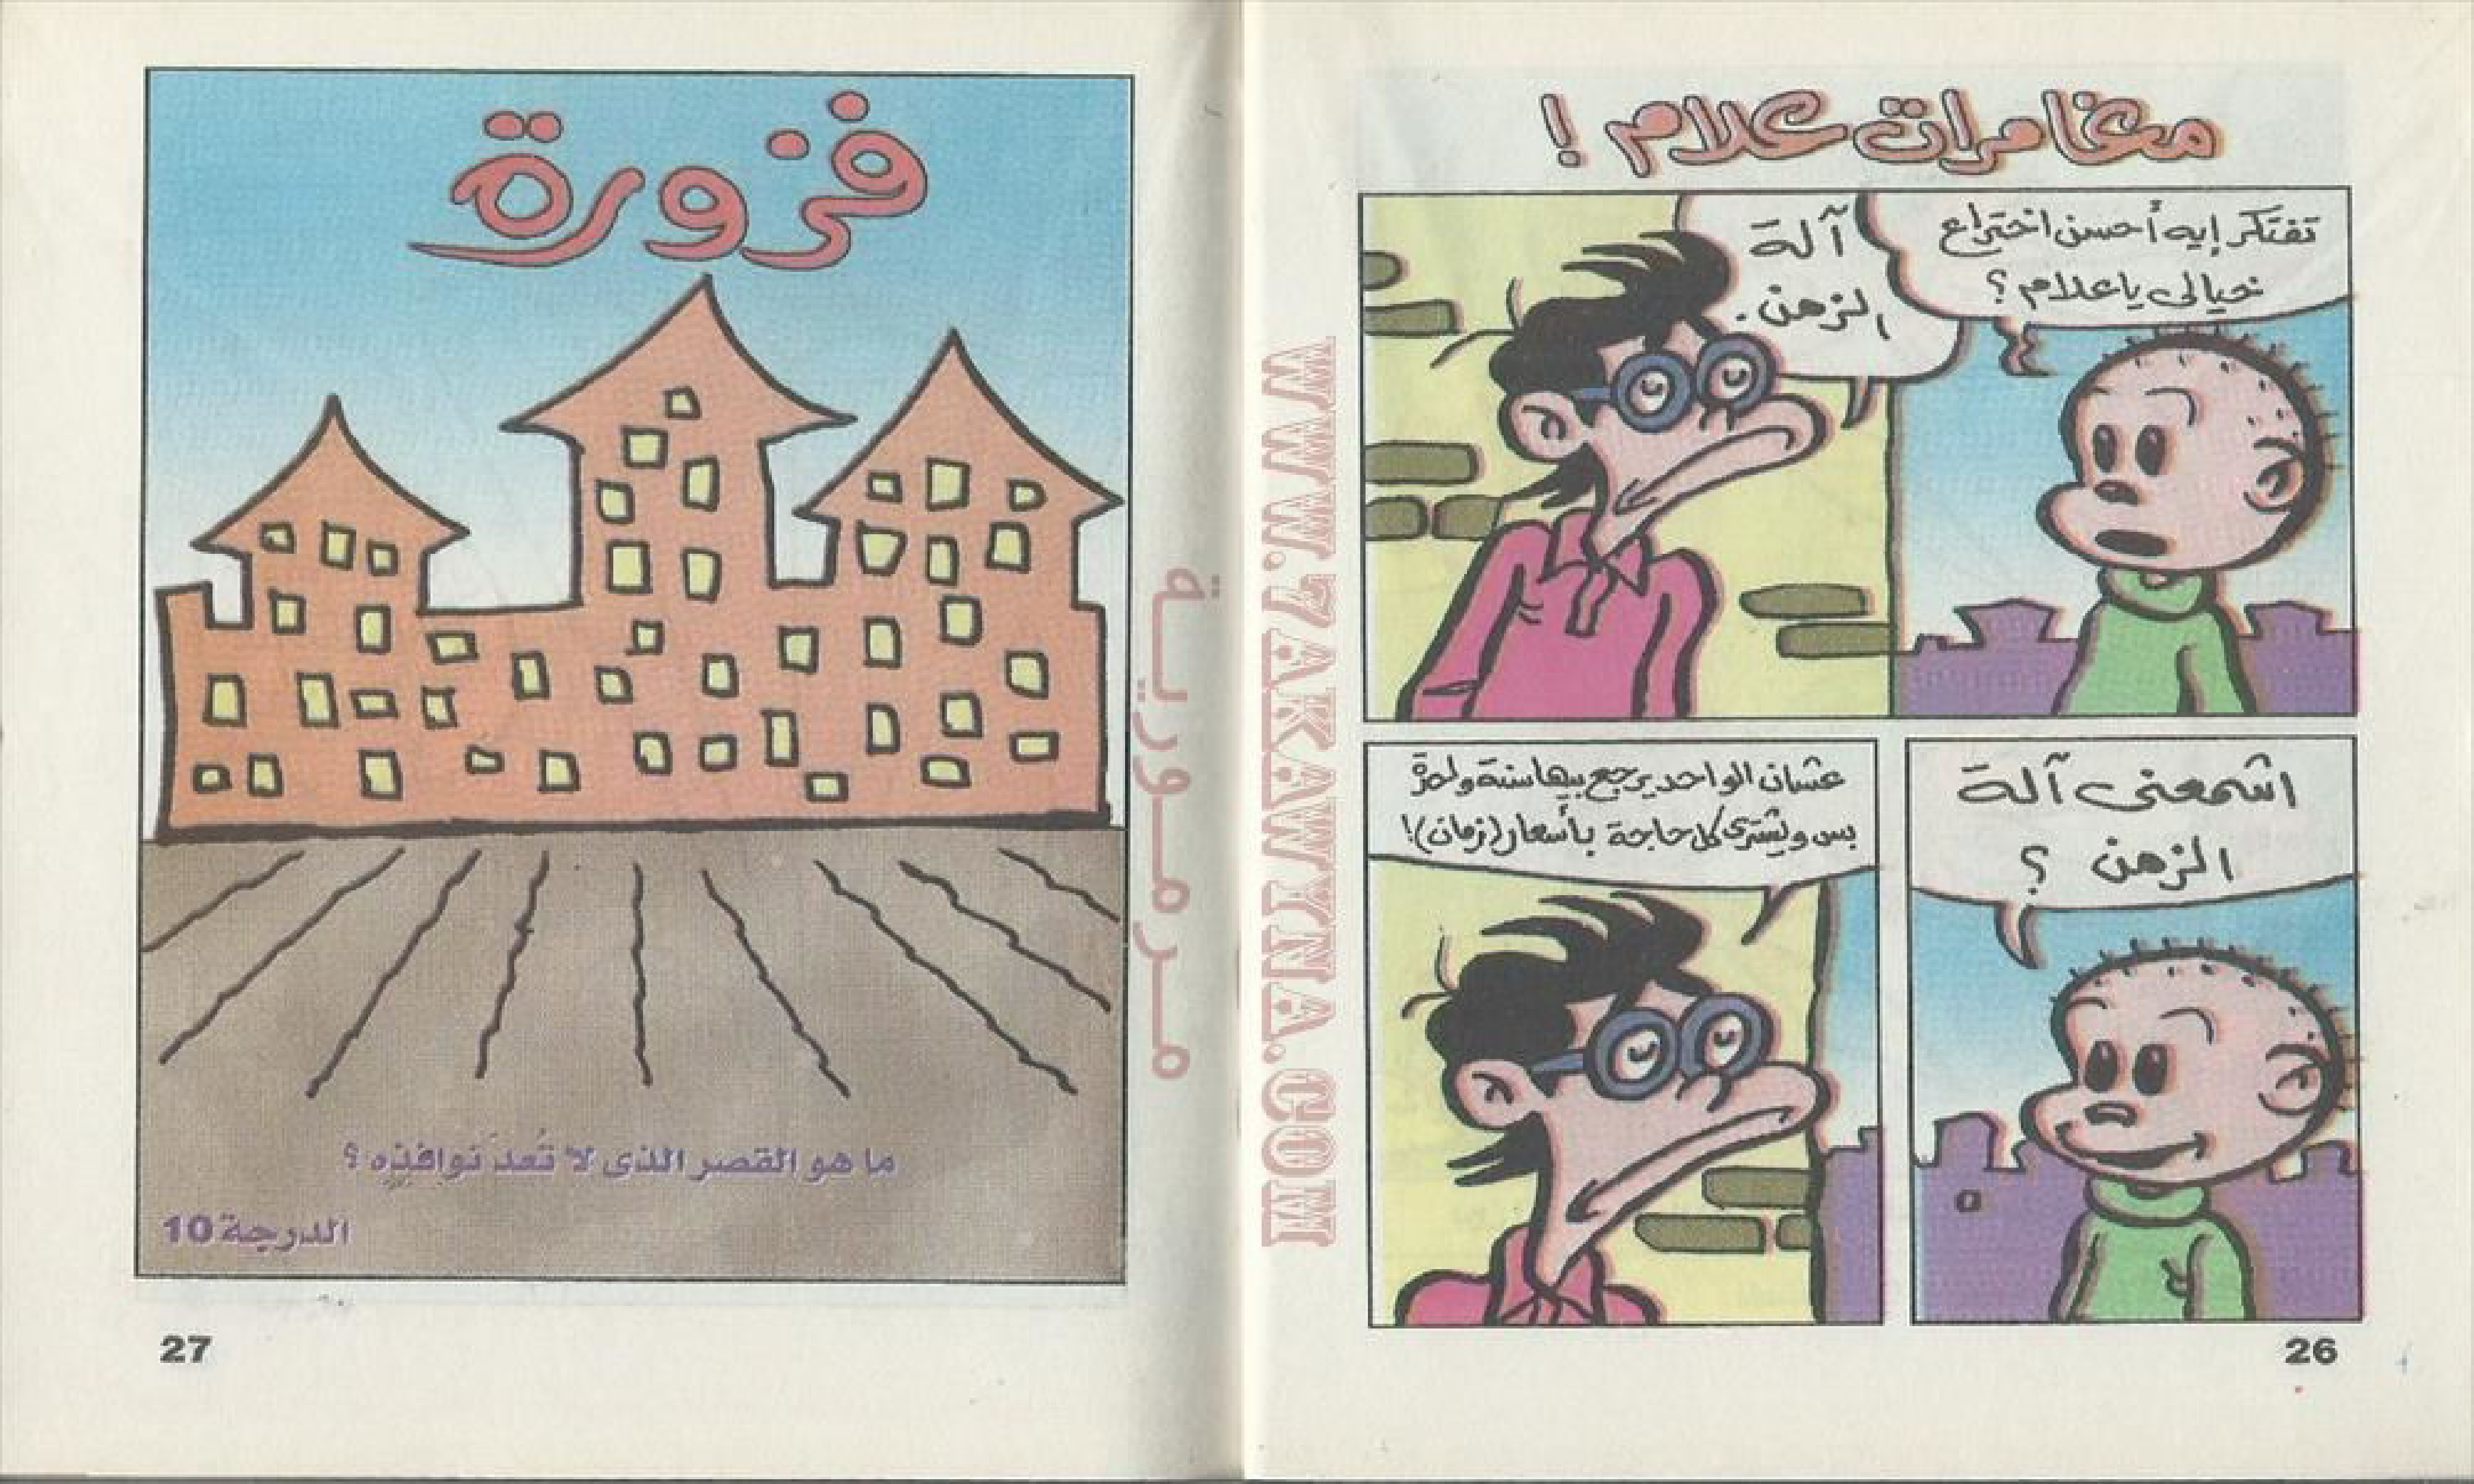 مغامرات علام !
تفتكر إيه أحسن اختراع
خيالى ياعلام ؟
آلة
الزمن .
اشمعنى آلة
الزمن ؟
عشان الواحد يرجع بيها سنة واحدة
بس ويشترى كل حاجة بأسعار (زمان) !
26
WWW.7AKAWYNA.COM
مرمورية
فزورة
ما هو القصر الذى لا تُعدَ نوافذه ؟
الدرجة 10
27